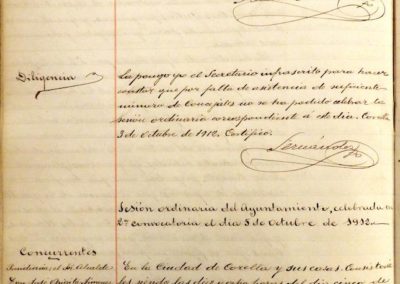 Diligencia
La pongo yo el Secretario infrascrito para hacer
constar que por falta de asistencia de suficiente
número de Concejales no se ha podido celebrar la
sesión ordinaria correspondiente á este dia. Corella
3 de Octubre de 1912. Certifico.
Fernández
Sesión ordinaria del Ayuntamiento, celebrada en
2ª convocatoria el dia 5 de Octubre de 1912.
Concurrentes
Presidencia, el Sr. Alcalde
En la Ciudad de Corella y sus casas Consisto-
les siendo las diez horas del dia cinco de